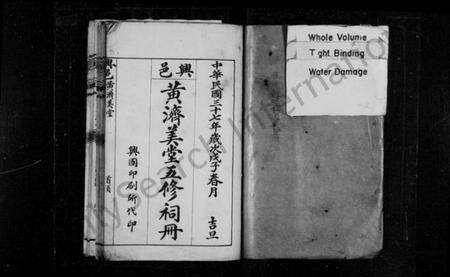 中華民國三十七年歲次戊子春月 吉旦
興邑
黃濟美堂五修祠冊
興國印刷所代印
Whole Volume
Tight Binding
Water Damage
FamilySearch International